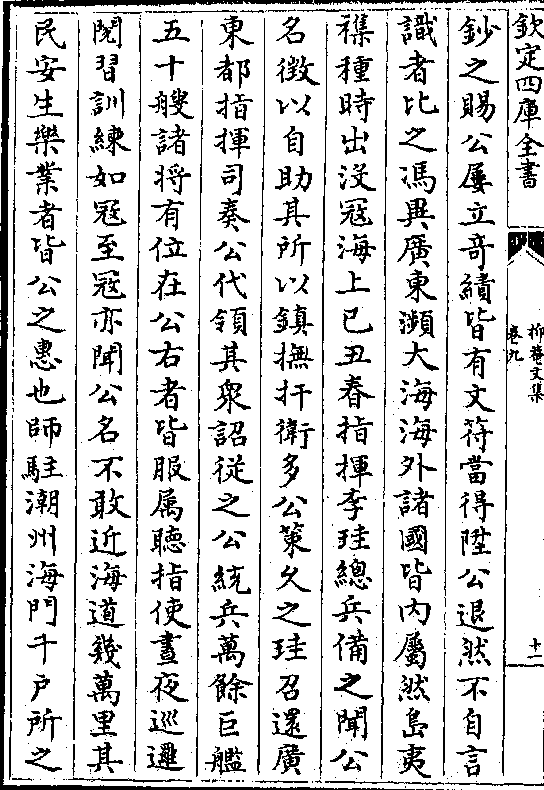 欽定四庫全書
抑菴文集
卷九
十二
鈔之賜公屢立奇績皆有文符當得陞公退然不自言
識者比之馮異廣東瀕大海海外諸國皆内屬然島夷
雜種時出没冦海上己丑春指揮李珪總兵備之聞公
名徴以自助其所以鎮撫扞衛多公策久之珪召還廣
東都指揮司奏公代領其衆詔從之公統兵萬餘巨艦
五十艘諸将有位在公右者皆服属聽指使晝夜巡邏
閲習訓練如冦至冦亦聞公名不敢近海道幾萬里其
民安生樂業者皆公之惠也師駐潮州海門千戸所之